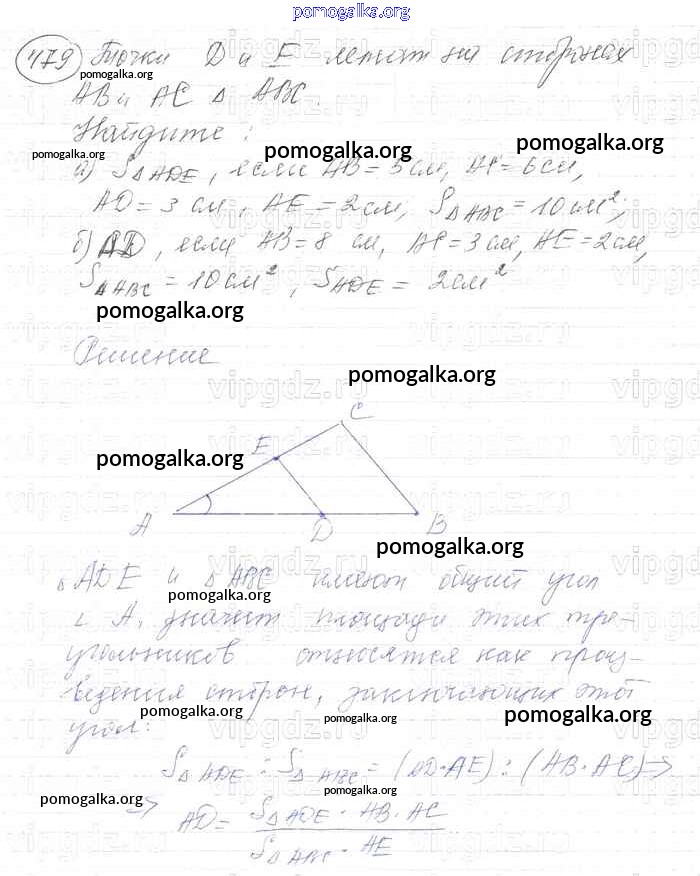 pomogalka.org
479 Точки D и E лежат на сторонах
pomogalka.org
AB и AC Δ ABC.
Найдите:
pomogalka.org
pomogalka.org
pomogalka.org
а) S Δ ADE, если AB = 5 см, AC = 6 см,
AD = 3 см, AE = 2 см, S Δ ABC = 10 см²;
б) AD, если AB = 8 см, AC = 3 см, AE = 2 см,
S Δ ABC = 10 см², S ADE = 2 см²
pomogalka.org
Решение
vipgdz.ru
pomogalka.org
C
E
pomogalka.org
A
D
B
pomogalka.org
Δ ADE и Δ ABC имеют общий угол
pomogalka.org
∠ A, значит площади этих тре-
угольников относятся как произ-
ведения сторон, заключающих этот
pomogalka.org
pomogalka.org
pomogalka.org
угол:
S Δ ADE : S Δ ABC = (AD·AE) : (AB·AC) ⇒
pomogalka.org
pomogalka.org
⇒ AD = S Δ ADE · AB · AC
S Δ ABC · AE